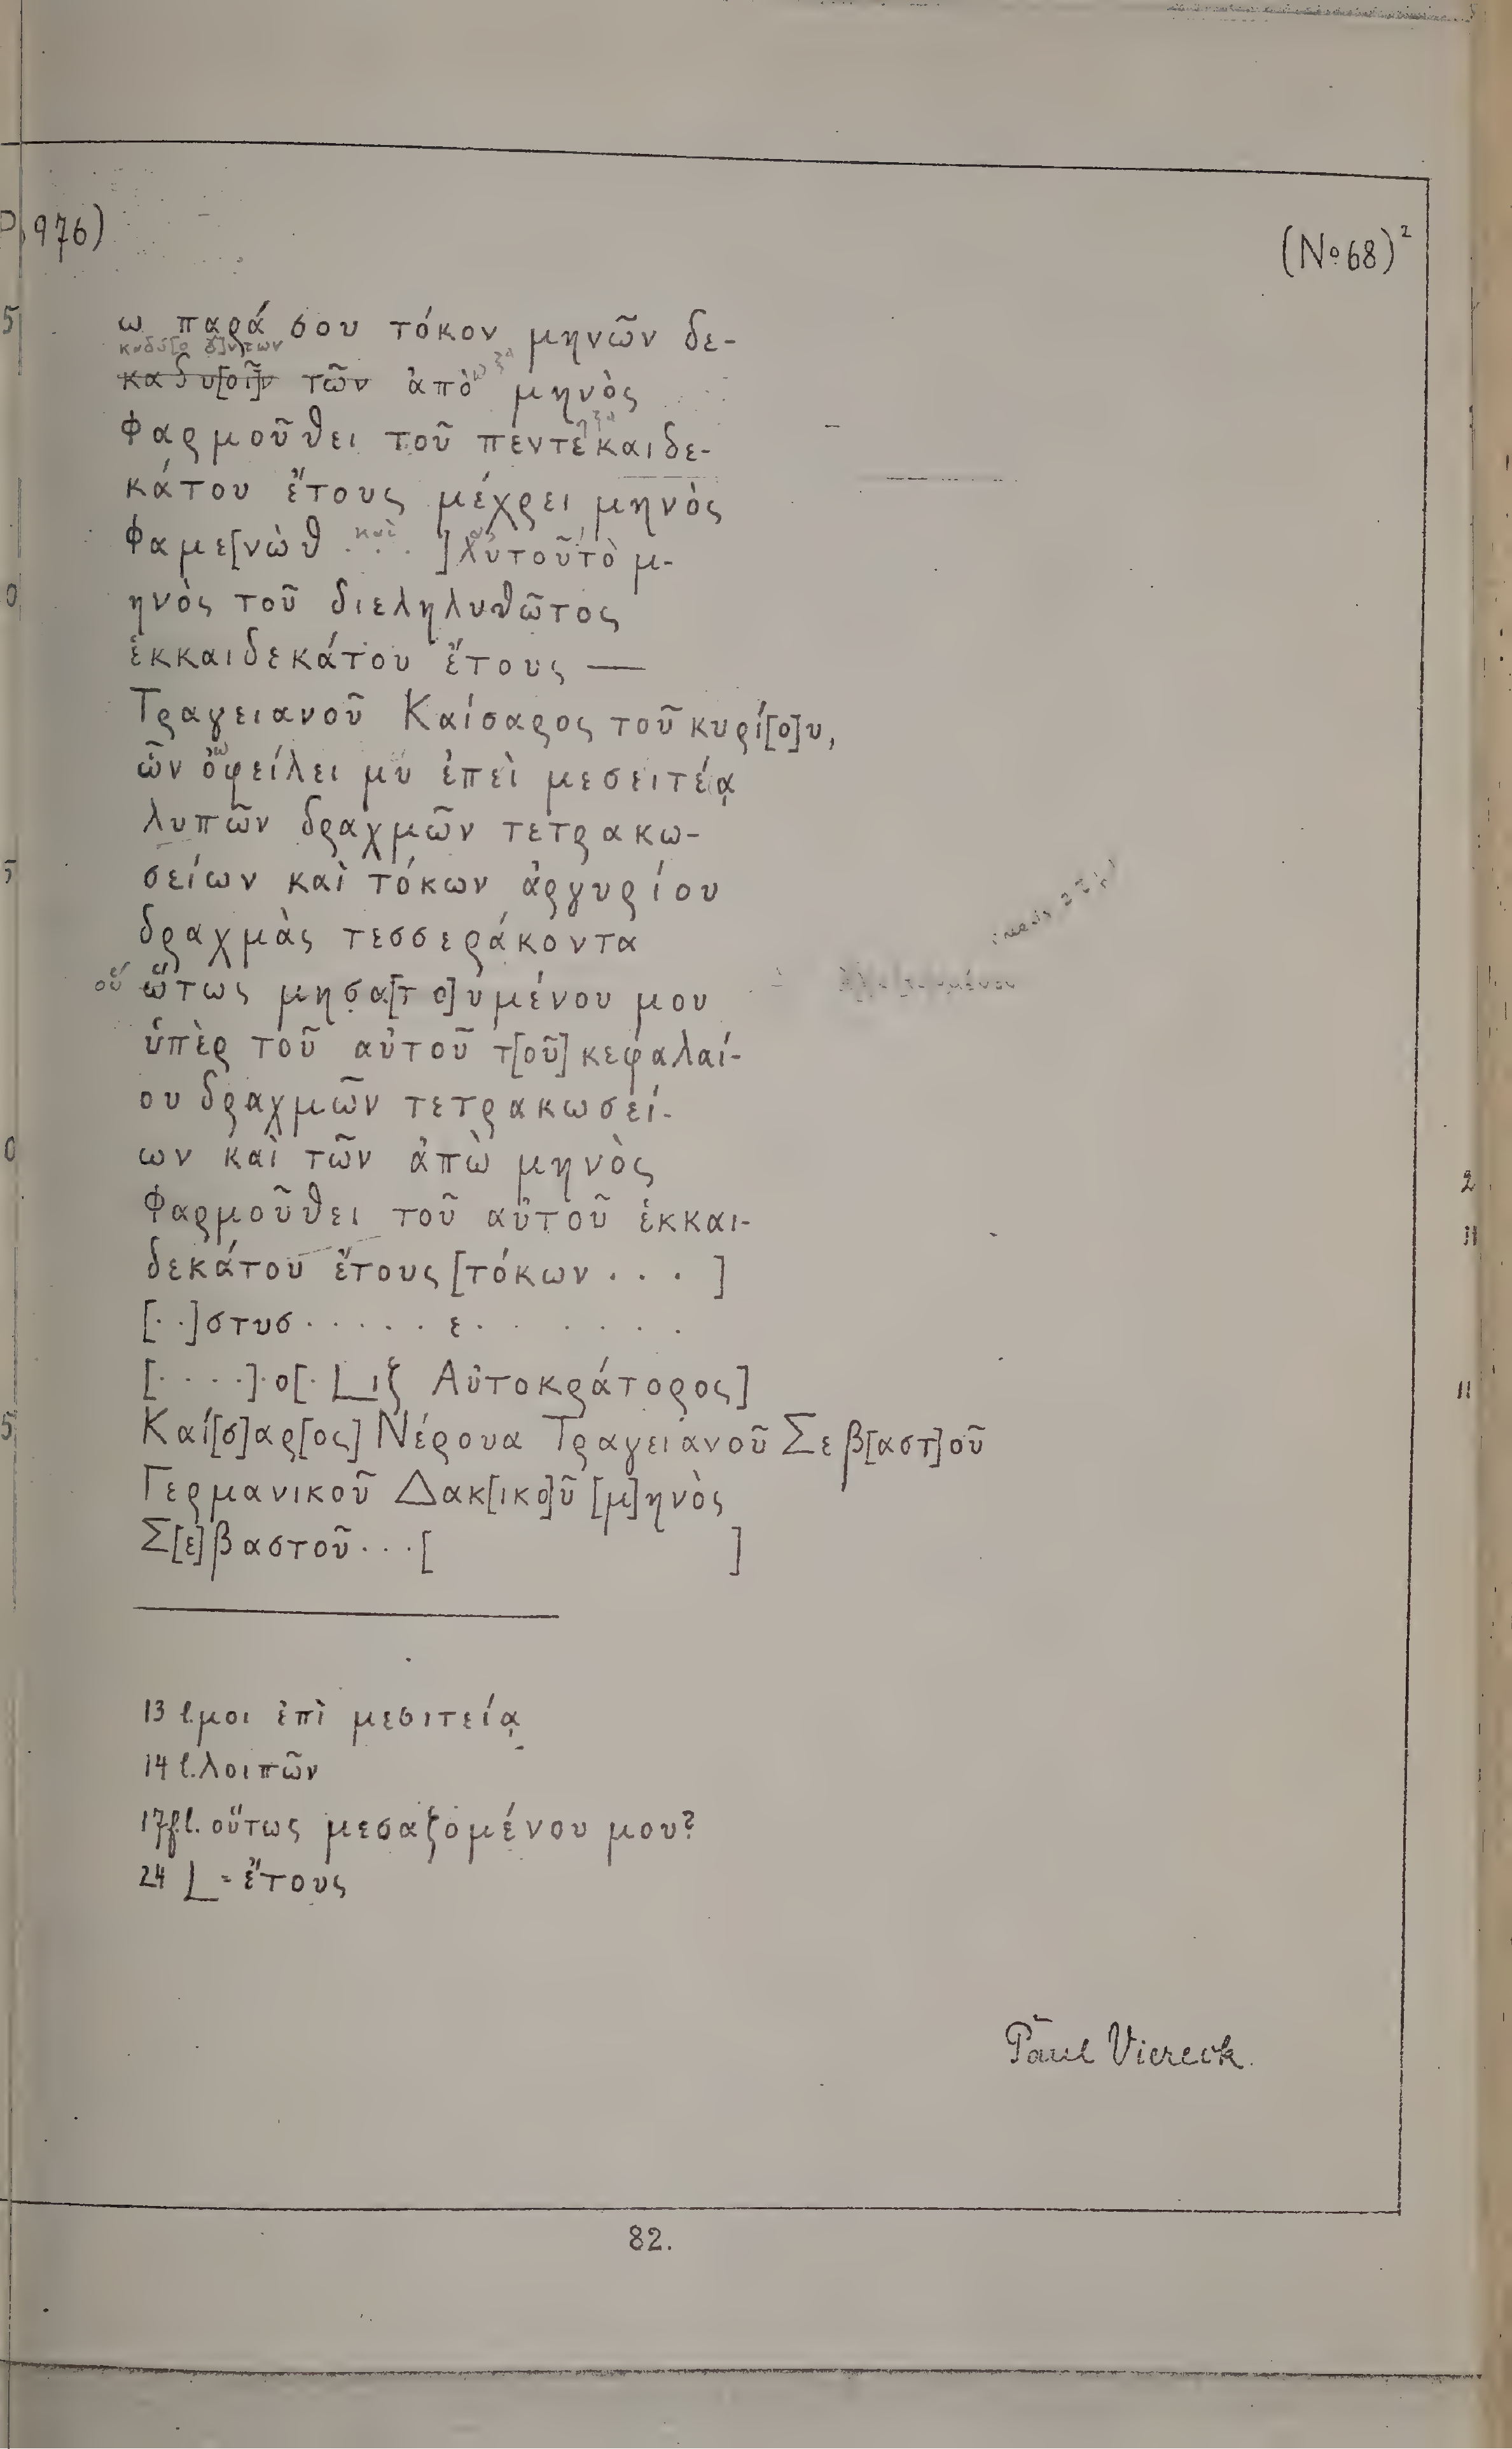 P. 976)
(No 68)²
5 ω παρά σου τόκον μηνῶν δε-
καδυ[οῖ]ν τῶν ἀπὸ μηνὸς
Φαρμοῦθει τοῦ πεντεκαιδε-
κάτου ἔτους μέχρει μηνὸς
Φαμε[νὼθ . . . ] αὐτοῦ τὸ μ-
0 ηνὸς τοῦ διεληλυθῶτος
ἑκκαιδεκάτου ἔτους —
Τραγειανοῦ Καίσαρος τοῦ κυρί[ο]υ,
ὧν ὀφείλει μύ ἐπεὶ μεσειτέᾳ
λυπῶν δραχμῶν τετρακω-
5 σείων καὶ τόκων ἀργυρίου
δραχμὰς τεσσεράκοντα
οὕ ὥτως μησα[τ ο]υμένου μου
ὑπὲρ τοῦ αὐτοῦ τ[οῦ] κεφαλαί-
ου δραχμῶν τετρακωσεί-
0 ων καὶ τῶν ἀπὼ μηνὸς
Φαρμοῦθει τοῦ αὐτοῦ ἑκκαι-
δεκάτου ἔτους [τόκων . . . ]
[. .]στυσ . . . . . ε . . . . .
[. . . .] . ο[ . L ιζ Αὐτοκράτορος]
5 Καί[σ]αρ[ος] Νέρουα Τραγειανοῦ Σεβ[αστ]οῦ
Γερμανικοῦ Δακ[ικο]ῦ [μ]ηνὸς
Σ[ε]βαστοῦ . . . [ ]
13 l. μοι ἐπὶ μεσιτείᾳ
14 l. λοιπῶν
17 f. l. οὕτως μεσαζομένου μου?
24 L = ἔτους
Paul Viereck.
82.